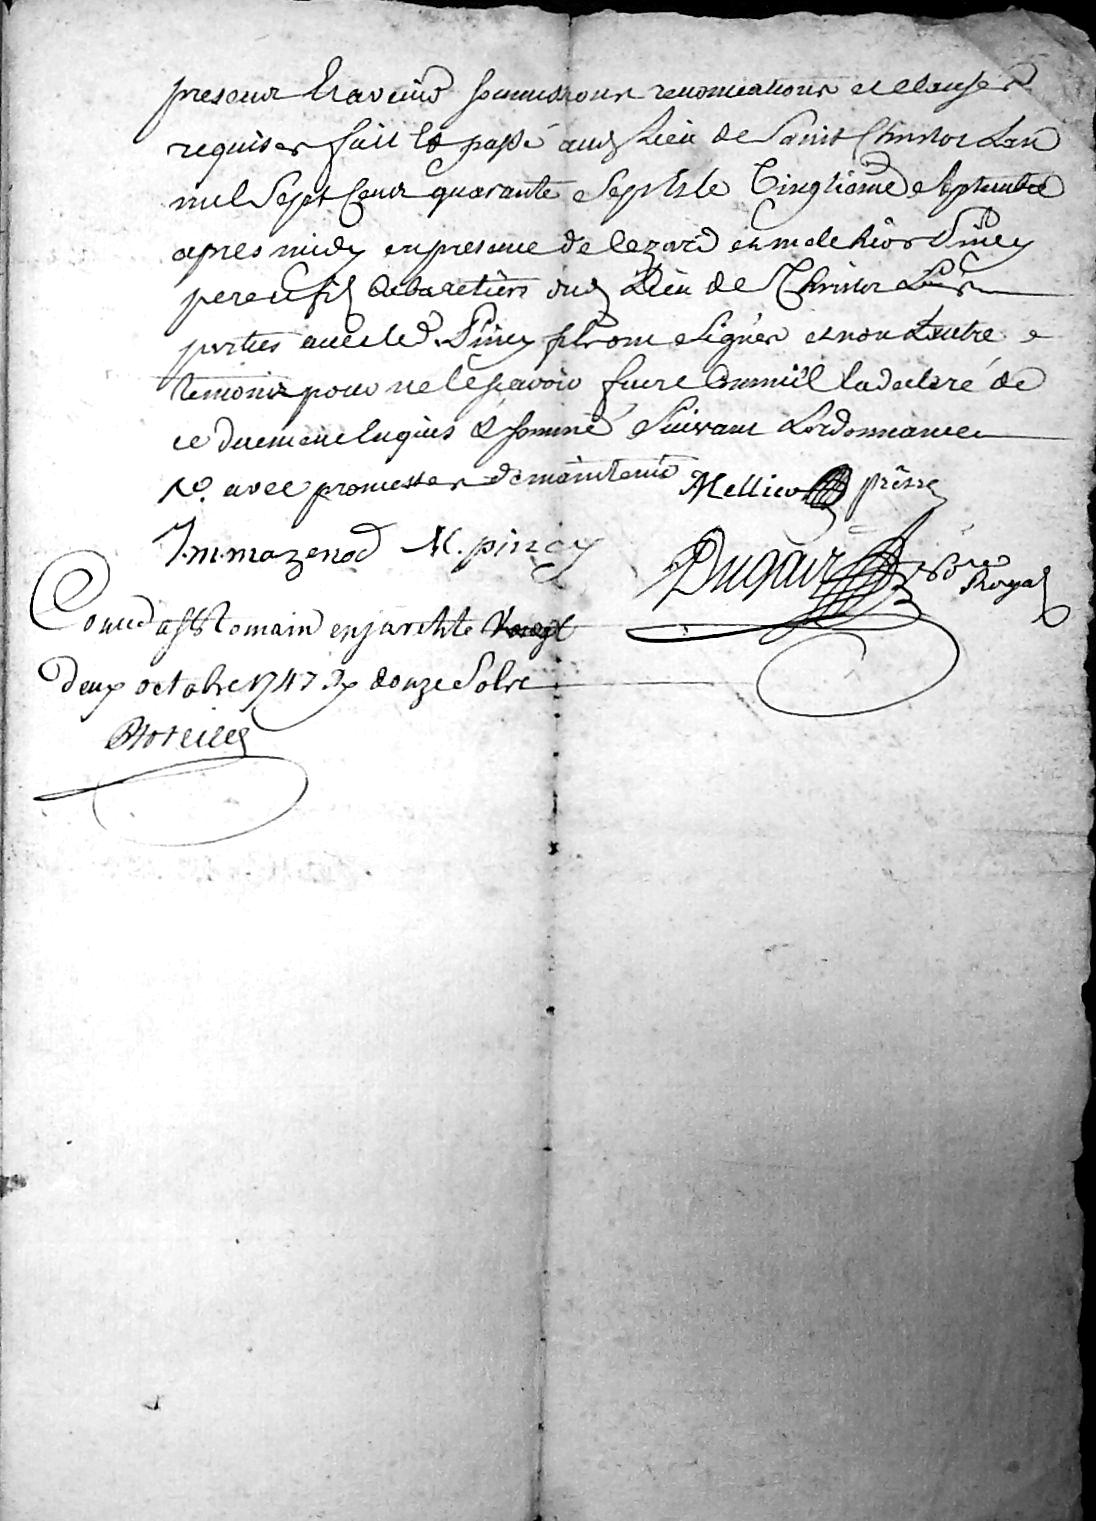 presens et avenir soumissions renonciations et clauses
requises fait et passé aud lieu de Saint Christot Lan
mil Sept Cent quarante Sept et le vingtiéme Septembre
apres midy en presence de lezard et melchior Piney
pere et fils Cabaretiers dud Lieu de St Christot Les
parties avec led. Piney fils ont Signés et non Lautre
temoins pour ne le sçavoir faire comme il la declaré de
ce duement enquis & sommé Suivant Lordonnance
avec promesses de maintenir Mellier prêtre
J. m. mazenod M. pincy
Dugair nore Royal
Conlé a St Romain en jarest le vingt
deux octobre 1747 Rx douze Sols